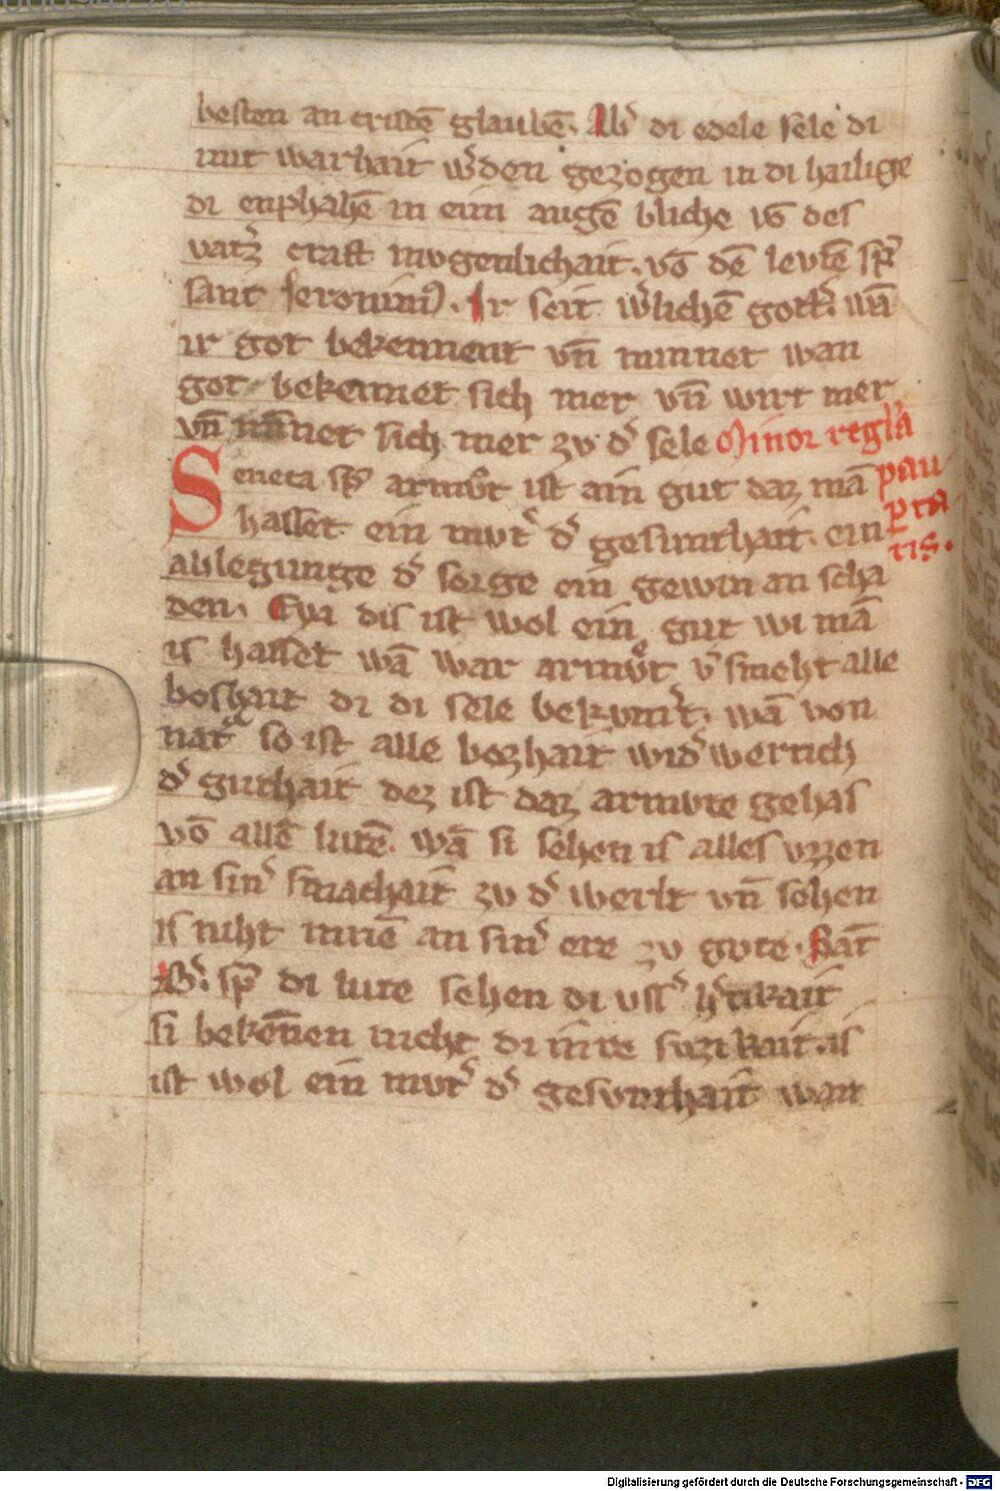 besten an cristē glaubē. Ab᷑ di edele sele di
mit warhait w᷑den gezogen in di hailige
di enphahē in eim augē bliche vō des
vat᷑z craft mvgenlichait. vō dē levtē sp᷑
sant Jeronim⁹. Ir seit w᷑lichē got᷑. wā
ir got bekennent vn̄ minnet wan
got bekennet sich mer vn̄ wirt mer
vn̄ minnet sich mer zv d᷑ sele Minor regl̄a
Seneca sp᷑ armvͦt ist ain gut daz mā pau
hasset ein mvt᷑ d᷑ gesunthait. ein ꝑta
ablegunge d᷑ sorge ein gewin an scha tis.
den. Eya dis ist wol ein gut wi mā
is hasset wā war armvͦt v᷑smeht alle
boshait di di sele bekvm᷑t. wā von
natᷓ so ist alle bozhait wid᷑wertich
d᷑ guthait dez ist daz armvte gehas
vō allē lutē. wā si sehen is alles vzzen
an sin᷑ smachait zv d᷑ werlt vn̄ sehen
is niht innē an sin᷑ ere zv gvte. Sāt
B᷑. sp᷑ di lute sehen di vss᷑ h᷑tikait
si bekēnen nicht di inre suzikait. is
ist wol ein mvt᷑ d᷑ gesvnthait wan
Digitalisierung gefördert durch die Deutsche Forschungsgemeinschaft - DFG